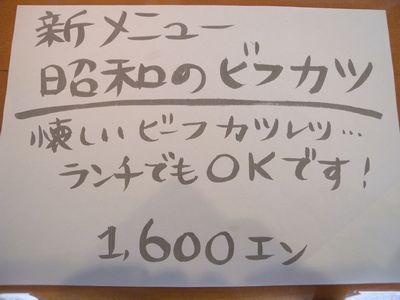 新メニュー
昭和のビフカツ
懐しいビーフカツレツ…
ランチでもOKです!
1,600エン